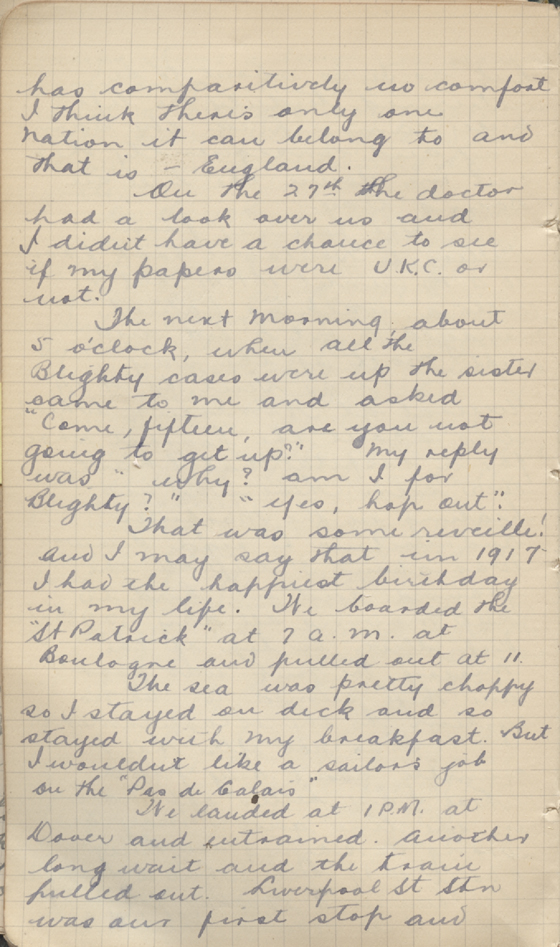 has comparitively no comfort
I think theris only one
nation it can belong to and
that is - England.
On the 27th the doctor
had a look over us and
I didn't have a chance to see
if my papers were U.K.C. or
not.
The next morning, about
5 o'clock, when all the
Blighty cases were up the sister
came to me and asked
"Come, fifteen, are you not
going to get up?" My reply
was "why? am I for
Blighty?" "yes, hop out".
That was some reveille!
and I may say that in 1917
I had the happiest birthday
in my life. We boarded the
"St Patrick" at 7 a.m. at
Boulogne and pulled out at 11.
The sea was pretty choppy
so I stayed on deck and so
stayed with my breakfast. But
I wouldn't like a sailors job
on the "Pas de Calais"
We landed at 1 P.M. at
Dover and entrained. Another
long wait and the train
pulled out. Liverpool St Stn
was our first stop and